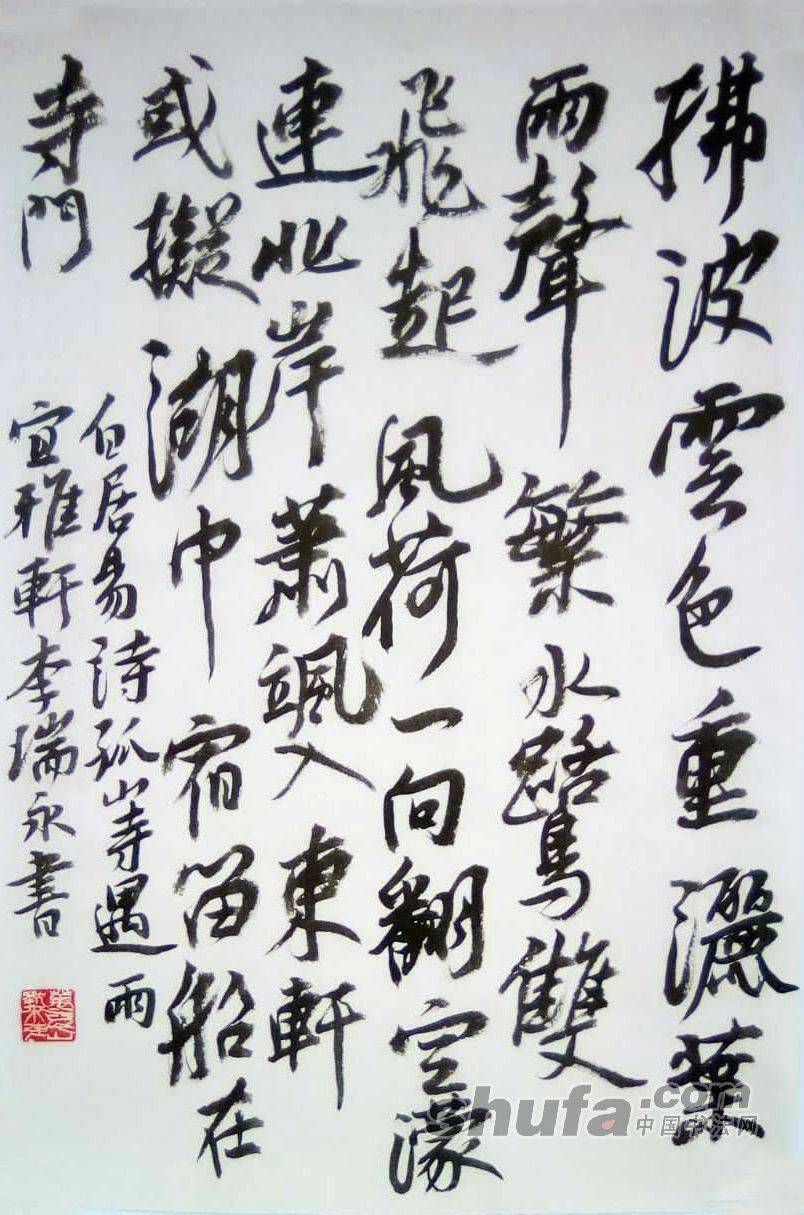 拂波雲色重灑葉
雨聲繁水鷺雙
飛起風荷一向翻空濛
連北岸蕭颯入東軒
或擬湖中宿留船在
寺門
白居易詩孤山寺遇雨
宜雅軒李瑞永書
shufa.com
中国书法网